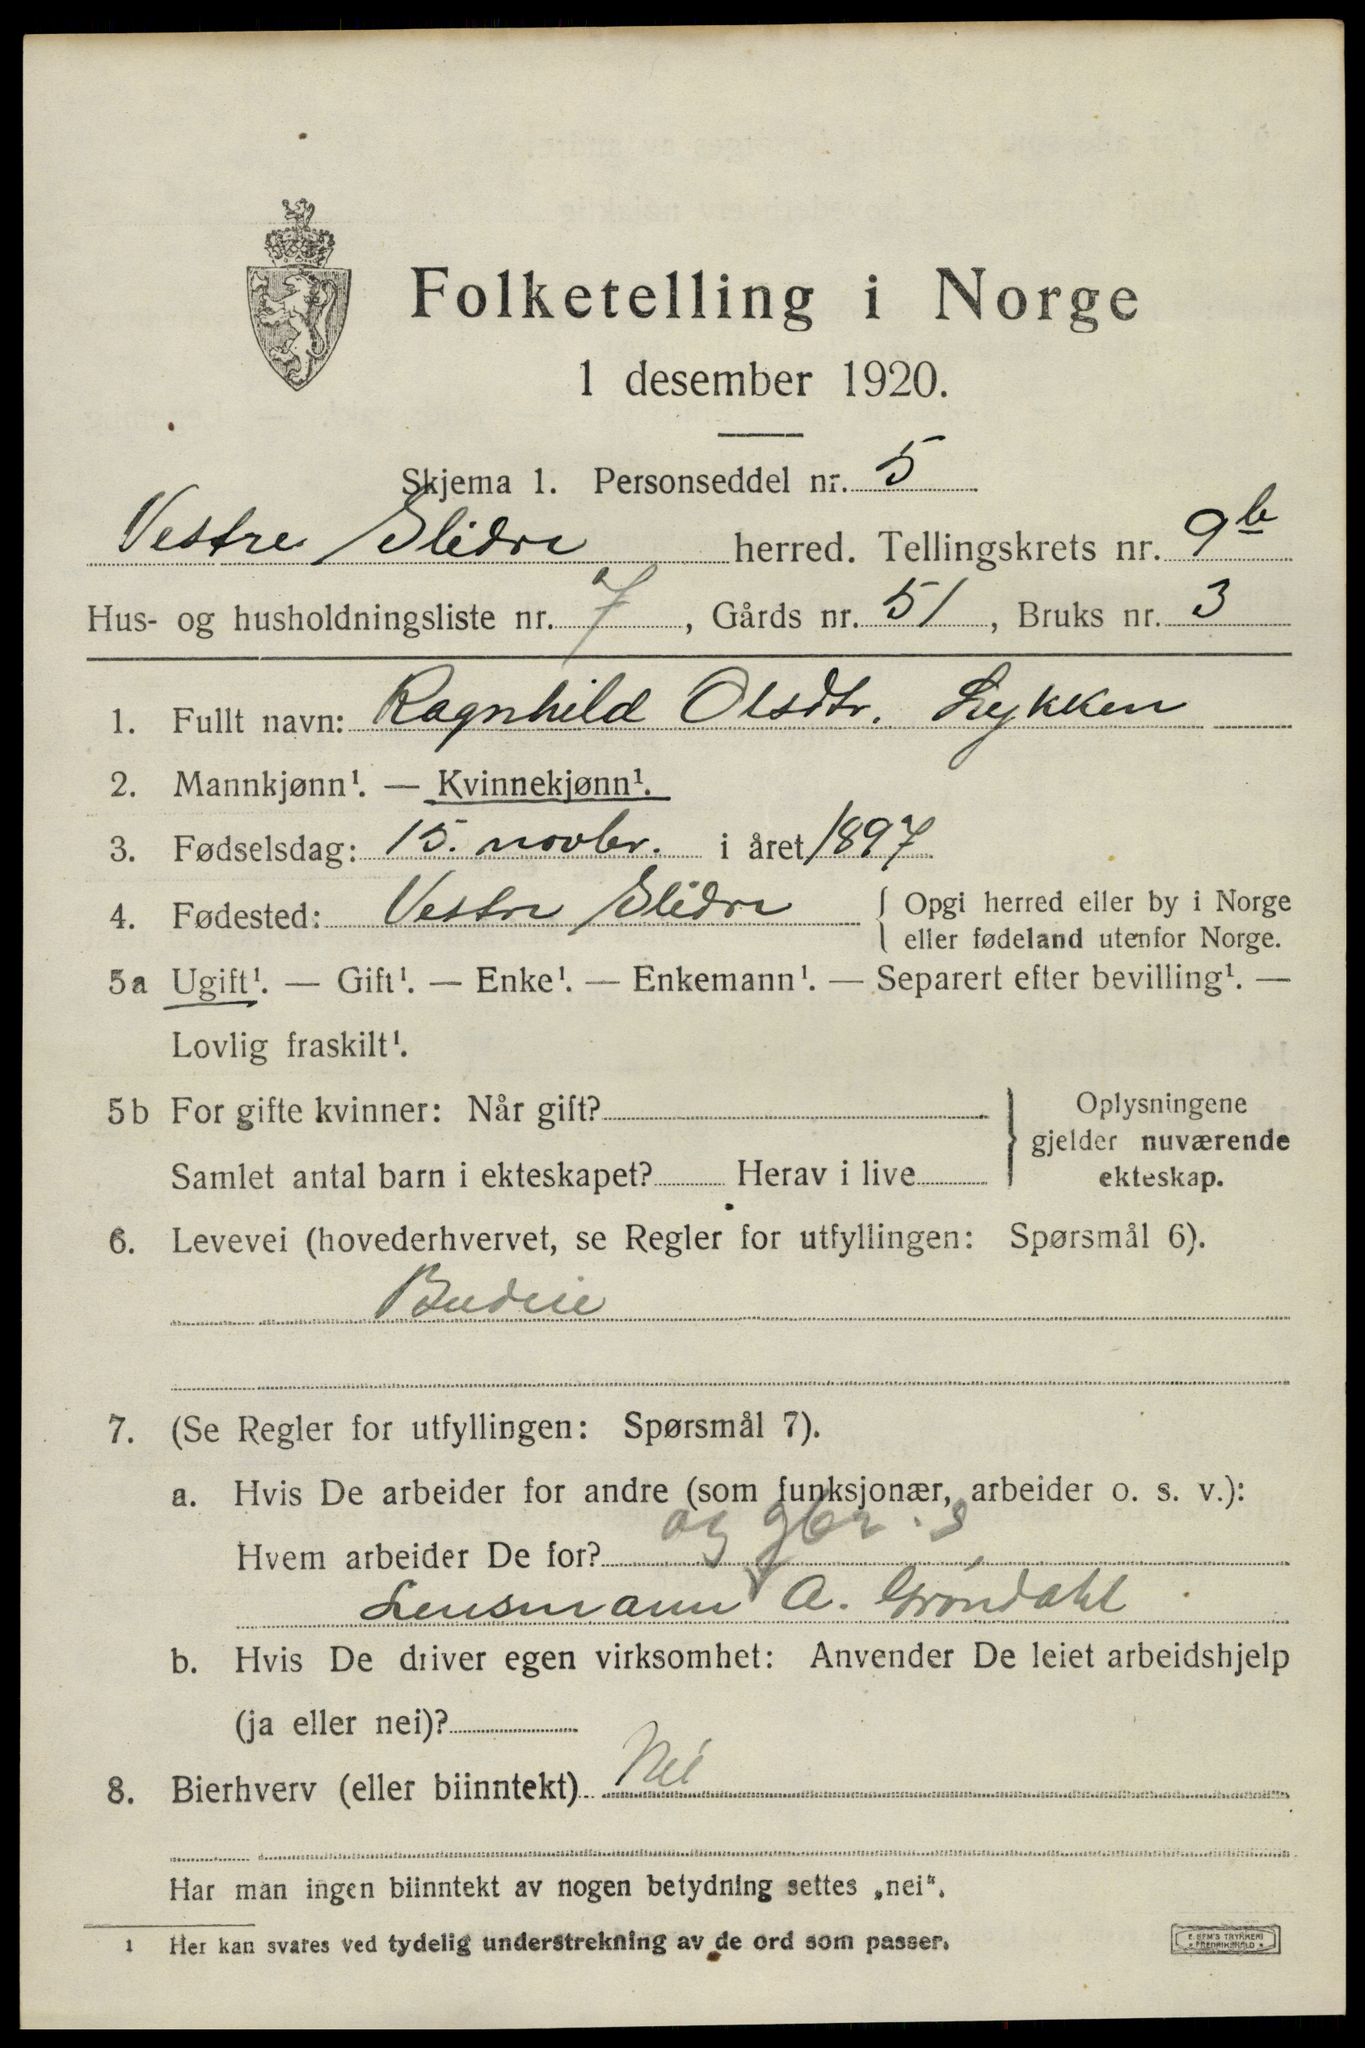 Folketelling i Norge
1 desember 1920.
Skjema 1. Personseddel nr. 5
Vestre Slidre herred. Tellingskrets nr. 9b
Hus- og husholdningsliste nr. 7, Gårds nr. 51, Bruks nr. 3
1. Fullt navn: Ragnhild Olsdtr. Lykken
2. Mannkjønn¹. — Kvinnekjønn¹.
3. Fødselsdag: 15. novbr. i året 1897
4. Fødested: Vestre Slidre { Opgi herred eller by i Norge
eller fødeland utenfor Norge.
5a Ugift¹. — Gift¹. — Enke¹. — Enkemann¹. — Separert efter bevilling¹. —
Lovlig fraskilt¹.
5b For gifte kvinner: Når gift? } Oplysningene
gjelder nuværende
Samlet antal barn i ekteskapet? Herav i live ekteskap.
6. Levevei (hovederhvervet, se Regler for utfyllingen: Spørsmål 6).
Budeie
7. (Se Regler for utfyllingen: Spørsmål 7).
a. Hvis De arbeider for andre (som funksjonær, arbeider o. s. v.):
Hvem arbeider De for? og gbr. s
Lensmann A. Grøndahl
b. Hvis De driver egen virksomhet: Anvender De leiet arbeidshjelp
(ja eller nei)?
8. Bierhverv (eller biinntekt) Nei
Har man ingen biinntekt av nogen betydning settes „nei“.
¹ Her kan svares ved tydelig understrekning av de ord som passer.
E. SEM'S TRYKKERI
FREDRIKSHALD